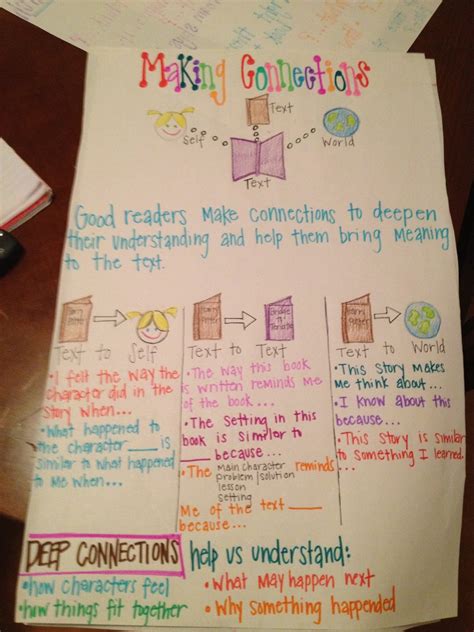 Making Connections
Text
Self
World
Text
Good readers make connections to deepen
their understanding and help them bring meaning
to the text.
Text to Self
• I felt the way the
character did in the
story when...
• What happened to
the character ____ is
similar to what happened
to me when...
Text to Text
• The way this book
is written reminds me
of the book...
• The setting in this
book is similar to
____ because...
• The main character reminds
problem/solution
lesson
setting
me of the text ____
because...
Text to World
• This story makes
me think about...
• I know about this
because...
• This story is similar
to something I learned...
DEEP CONNECTIONS help us understand:
• how characters feel
• how things fit together
• What may happen next
• Why something happened